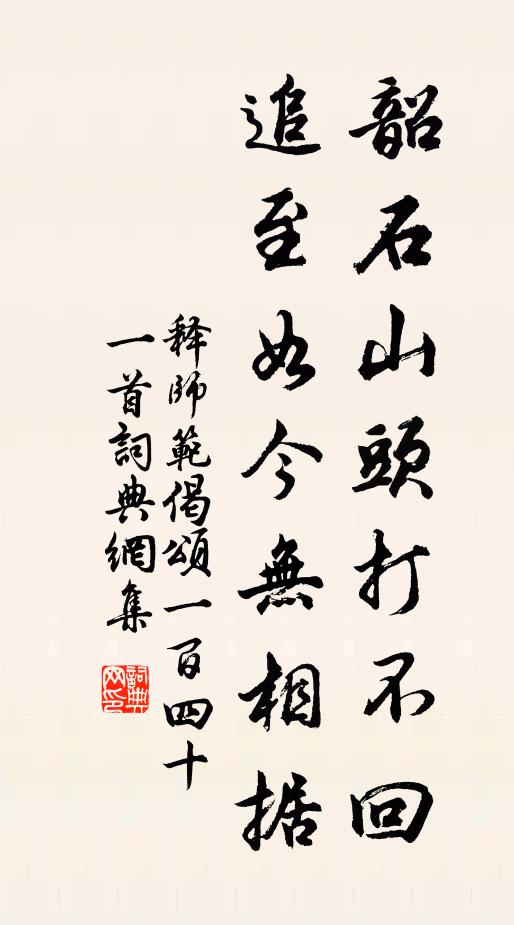 韶石山頭打不回
追至如今無相据
释師範偈頌一百四十
一首詞典網集
詞典
网印